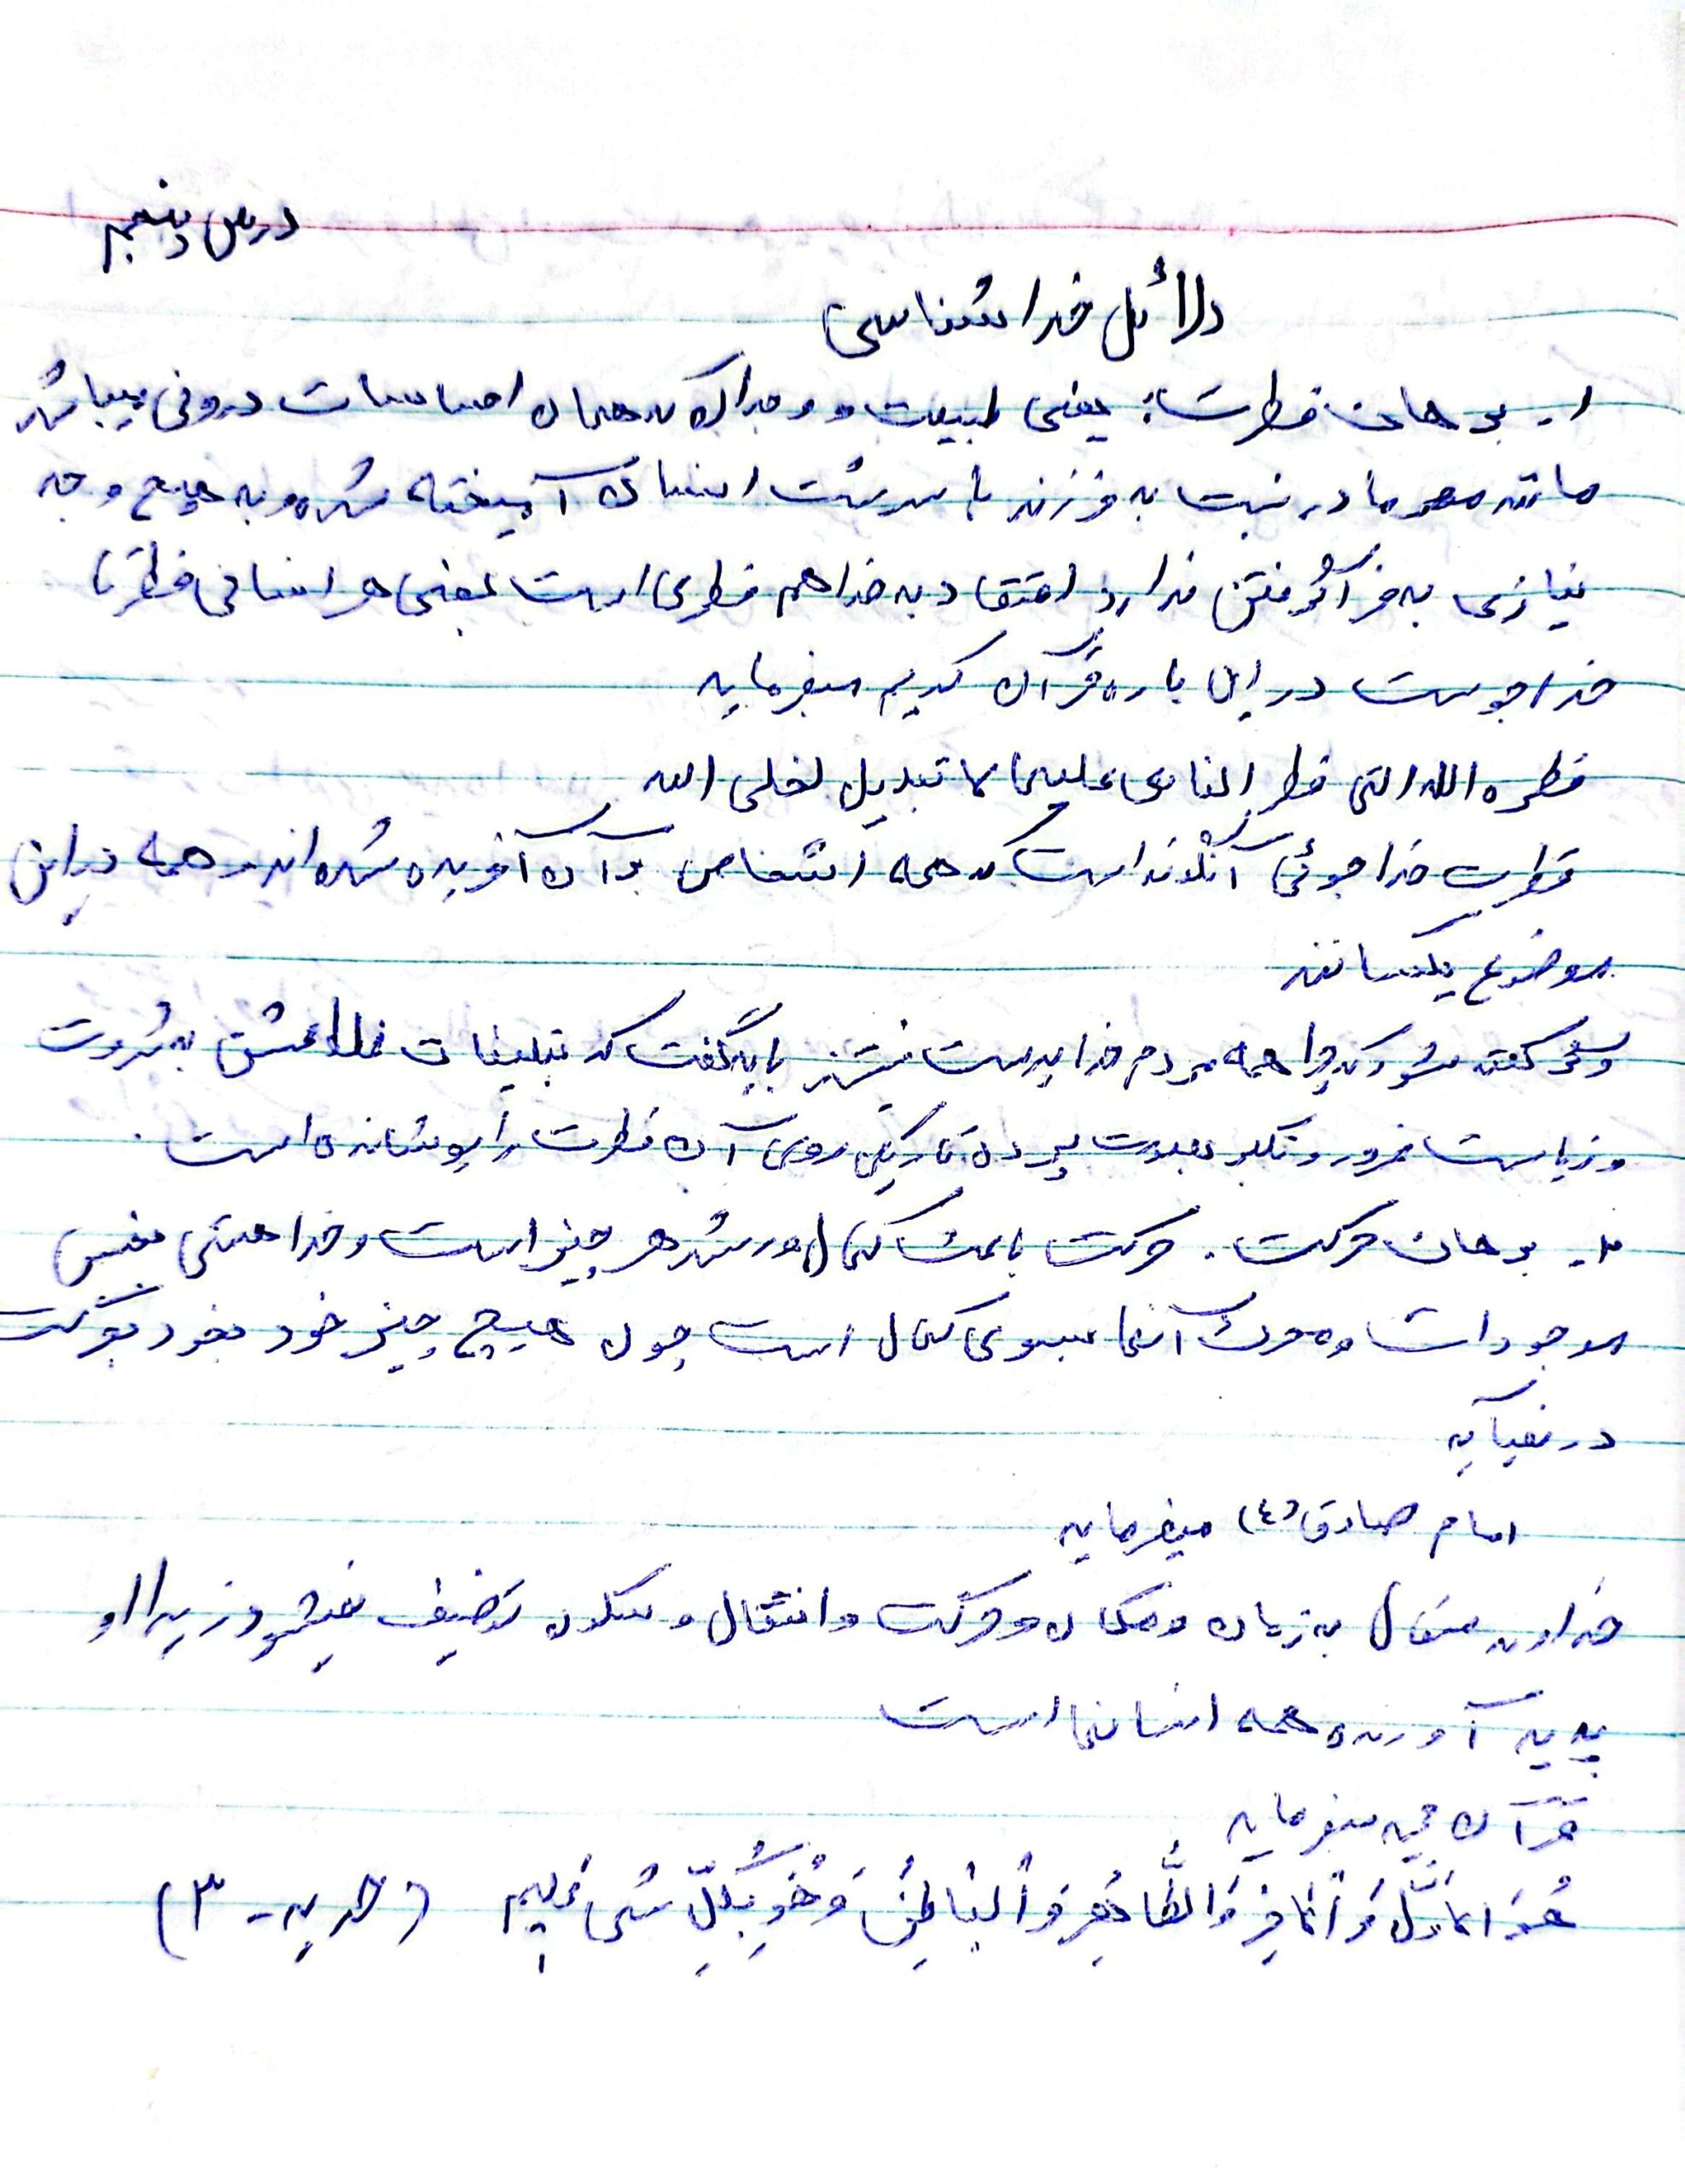 درس پنجم
دلائل خداشناسی
۱- برهان فطرت: یعنی طبیعت و وجدان که همان احساسات درونی میباشد
مانند مهر مادر نسبت به فرزند با سرشت انسان آمیخته شده و به هیچ وجه
نیازی به فرا گرفتن ندارد اعتقاد به خدا هم فطری است یعنی هر انسانی فطرتا
خداجوست در این باره قرآن کریم میفرماید
فطره الله التی فطر الناس علیها لا تبدیل لخلق الله
فطرت خداجوئی آنگونه است که همه اشخاص بر آن آفریده شده اند و همه در این
موضوع یکسانند
گفته شود که چرا همه مردم خداپرست نیستند باید گفت که تبلیغات غلط عشق به ثروت
و ریاست غرور و تکبر بصورت پرده تاریکی روی آن فطرت را پوشانده است.
۲- برهان حرکت. حرکت باعث کمال و رشد هر چیز است و خدا هستی بخش
موجودات و محرک آنها بسوی کمال است چون هیچ چیز خود بخود بحرکت
در نمیآید
امام صادق (ع) میفرماید
خداوند متعال به زمان و مکان و حرکت و انتقال و سکون توصیف نمیشود زیرا او
پدید آورنده همه اینها است
قرآن مجید میفرماید
هُوَ الاَوَّلُ وَ الْآخِرُ وَ الظَّاهِرُ وَ الْبَاطِنُ وَ هُوَ بِکُلِّ شَیء عَلِیم (حدید - ۳)